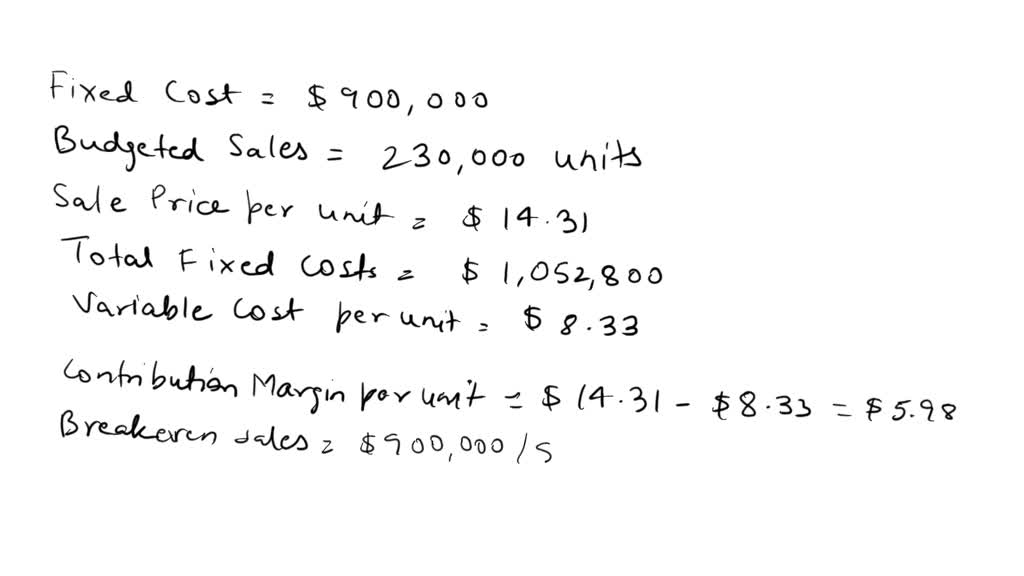 Fixed Cost = $900,000
Budgeted Sales = 230,000 units
Sale Price per unit = $14.31
Total Fixed Costs = $1,052,800
Variable Cost per unit = $8.33
Contribution Margin per unit = $14.31 - $8.33 = $5.98
Breakeven sales = $900,000/5